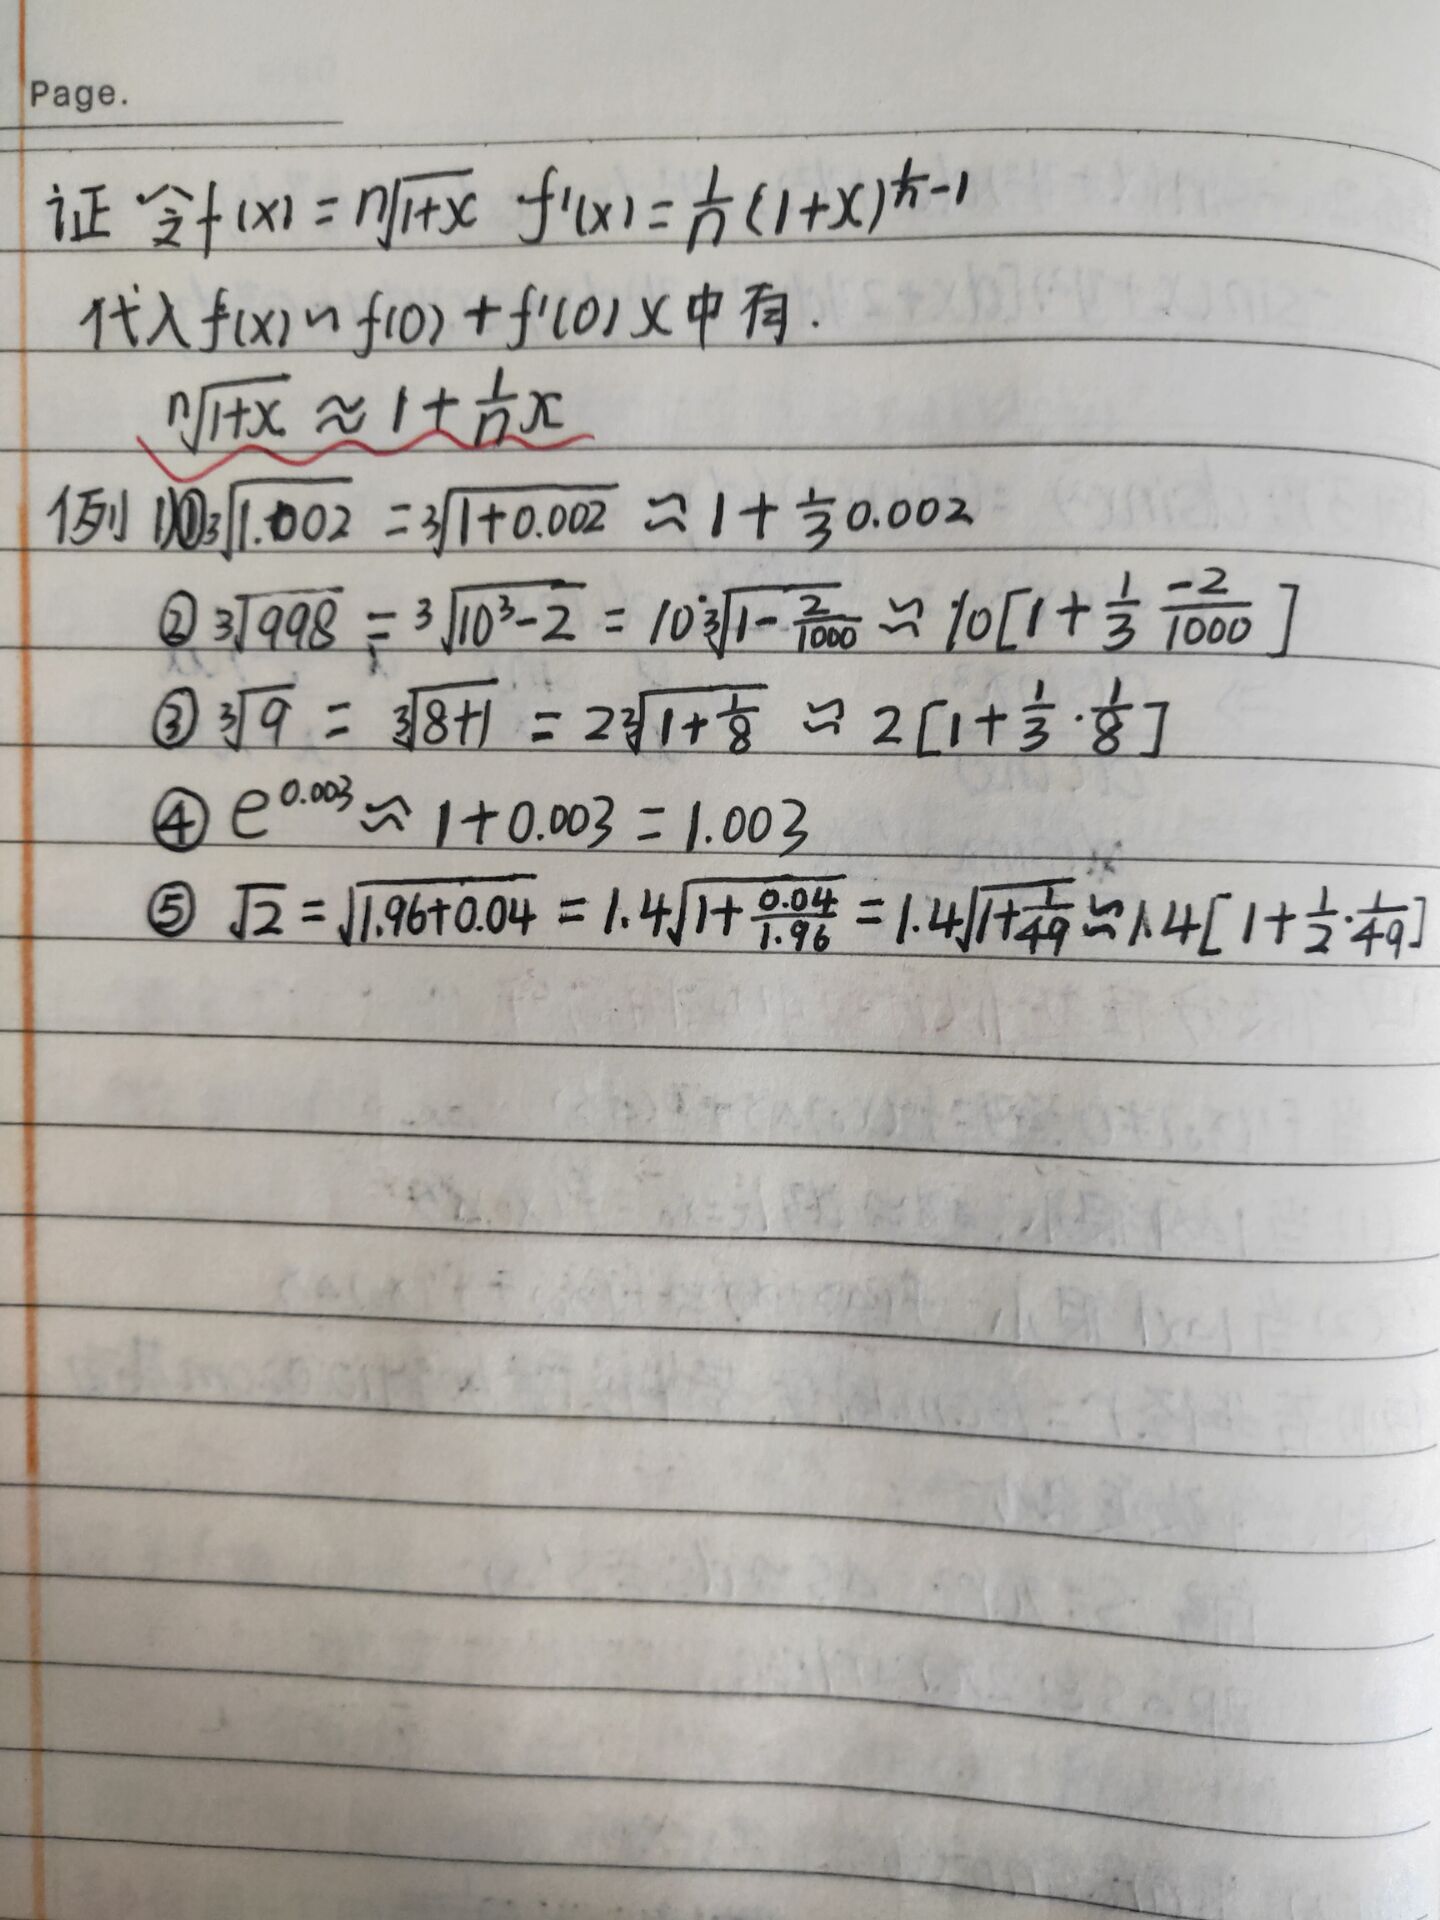 Page.
证 令f(x)=ⁿ√(1+x) f'(x)=1/n(1+x)^(1/n-1)
代入f(x)≈f(0)+f'(0)x中有.
ⁿ√(1+x) ≈ 1+1/n x
例1)①³√1.002 =³√(1+0.002) ≈ 1+1/3 0.002
②³√998 = ³√(10³-2) = 10·³√(1-2/1000) ≈ 10[1+1/3 -2/1000]
③³√9 = ³√(8+1) = 2³√(1+1/8) ≈ 2[1+1/3·1/8]
④ e^0.003 ≈ 1+0.003=1.003
⑤ √2=√(1.96+0.04) =1.4√(1+0.04/1.96) =1.4√(1+1/49) ≈1.4[1+1/2·1/49]